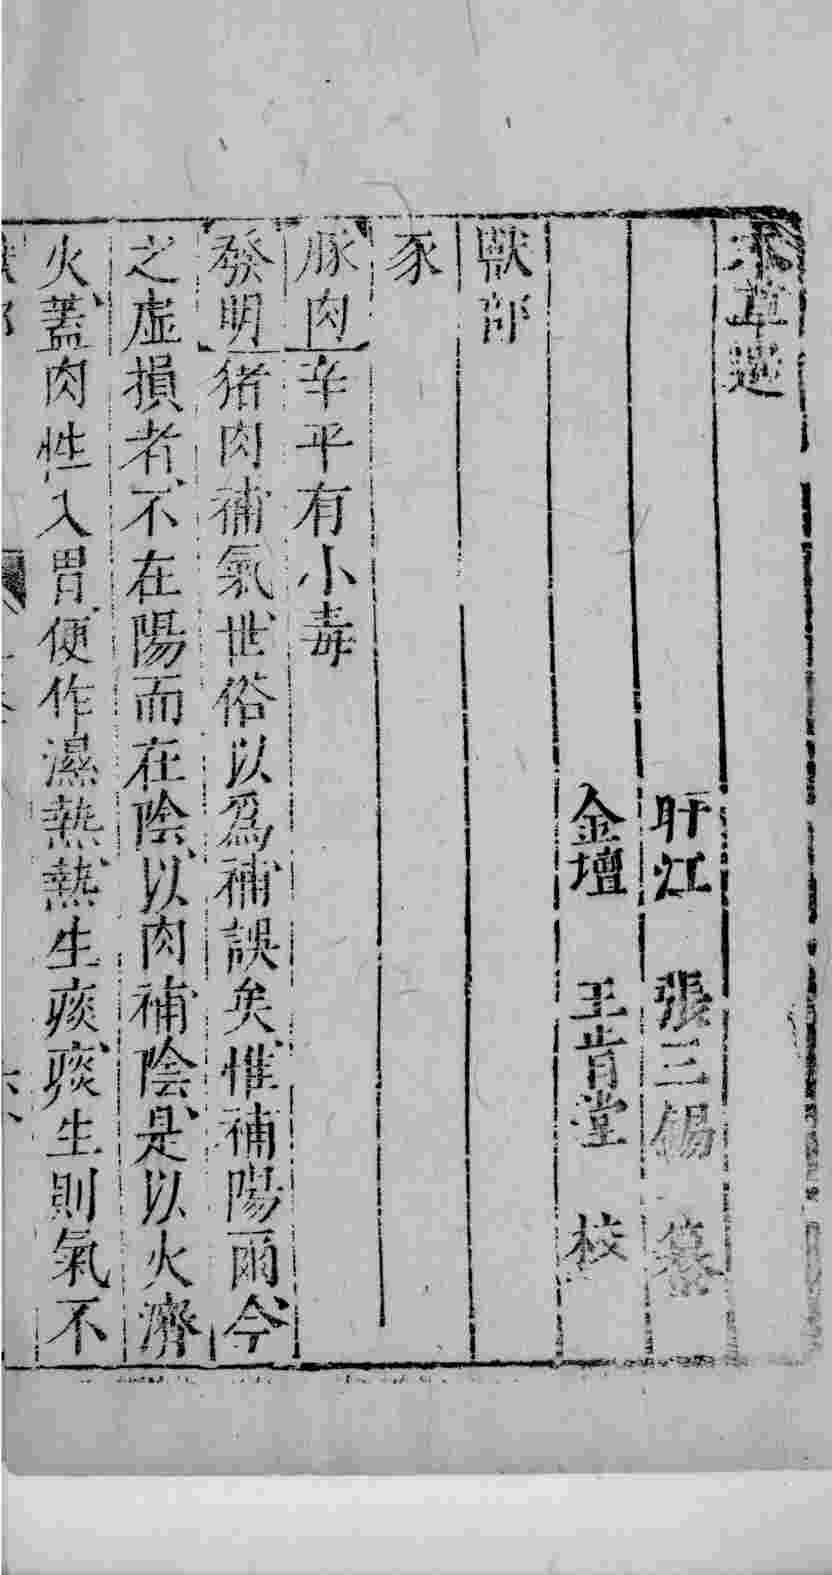 本草選
盱江　張三錫　纂
金壇　王肯堂　校
獸部
豕
豚肉辛平有小毒
發明猪肉補氣世俗以爲補誤矣惟補陽爾今
之虛損者不在陽而在陰以肉補陰是以火濟
火蓋肉性入胃便作濕熱熱生痰痰生則氣不